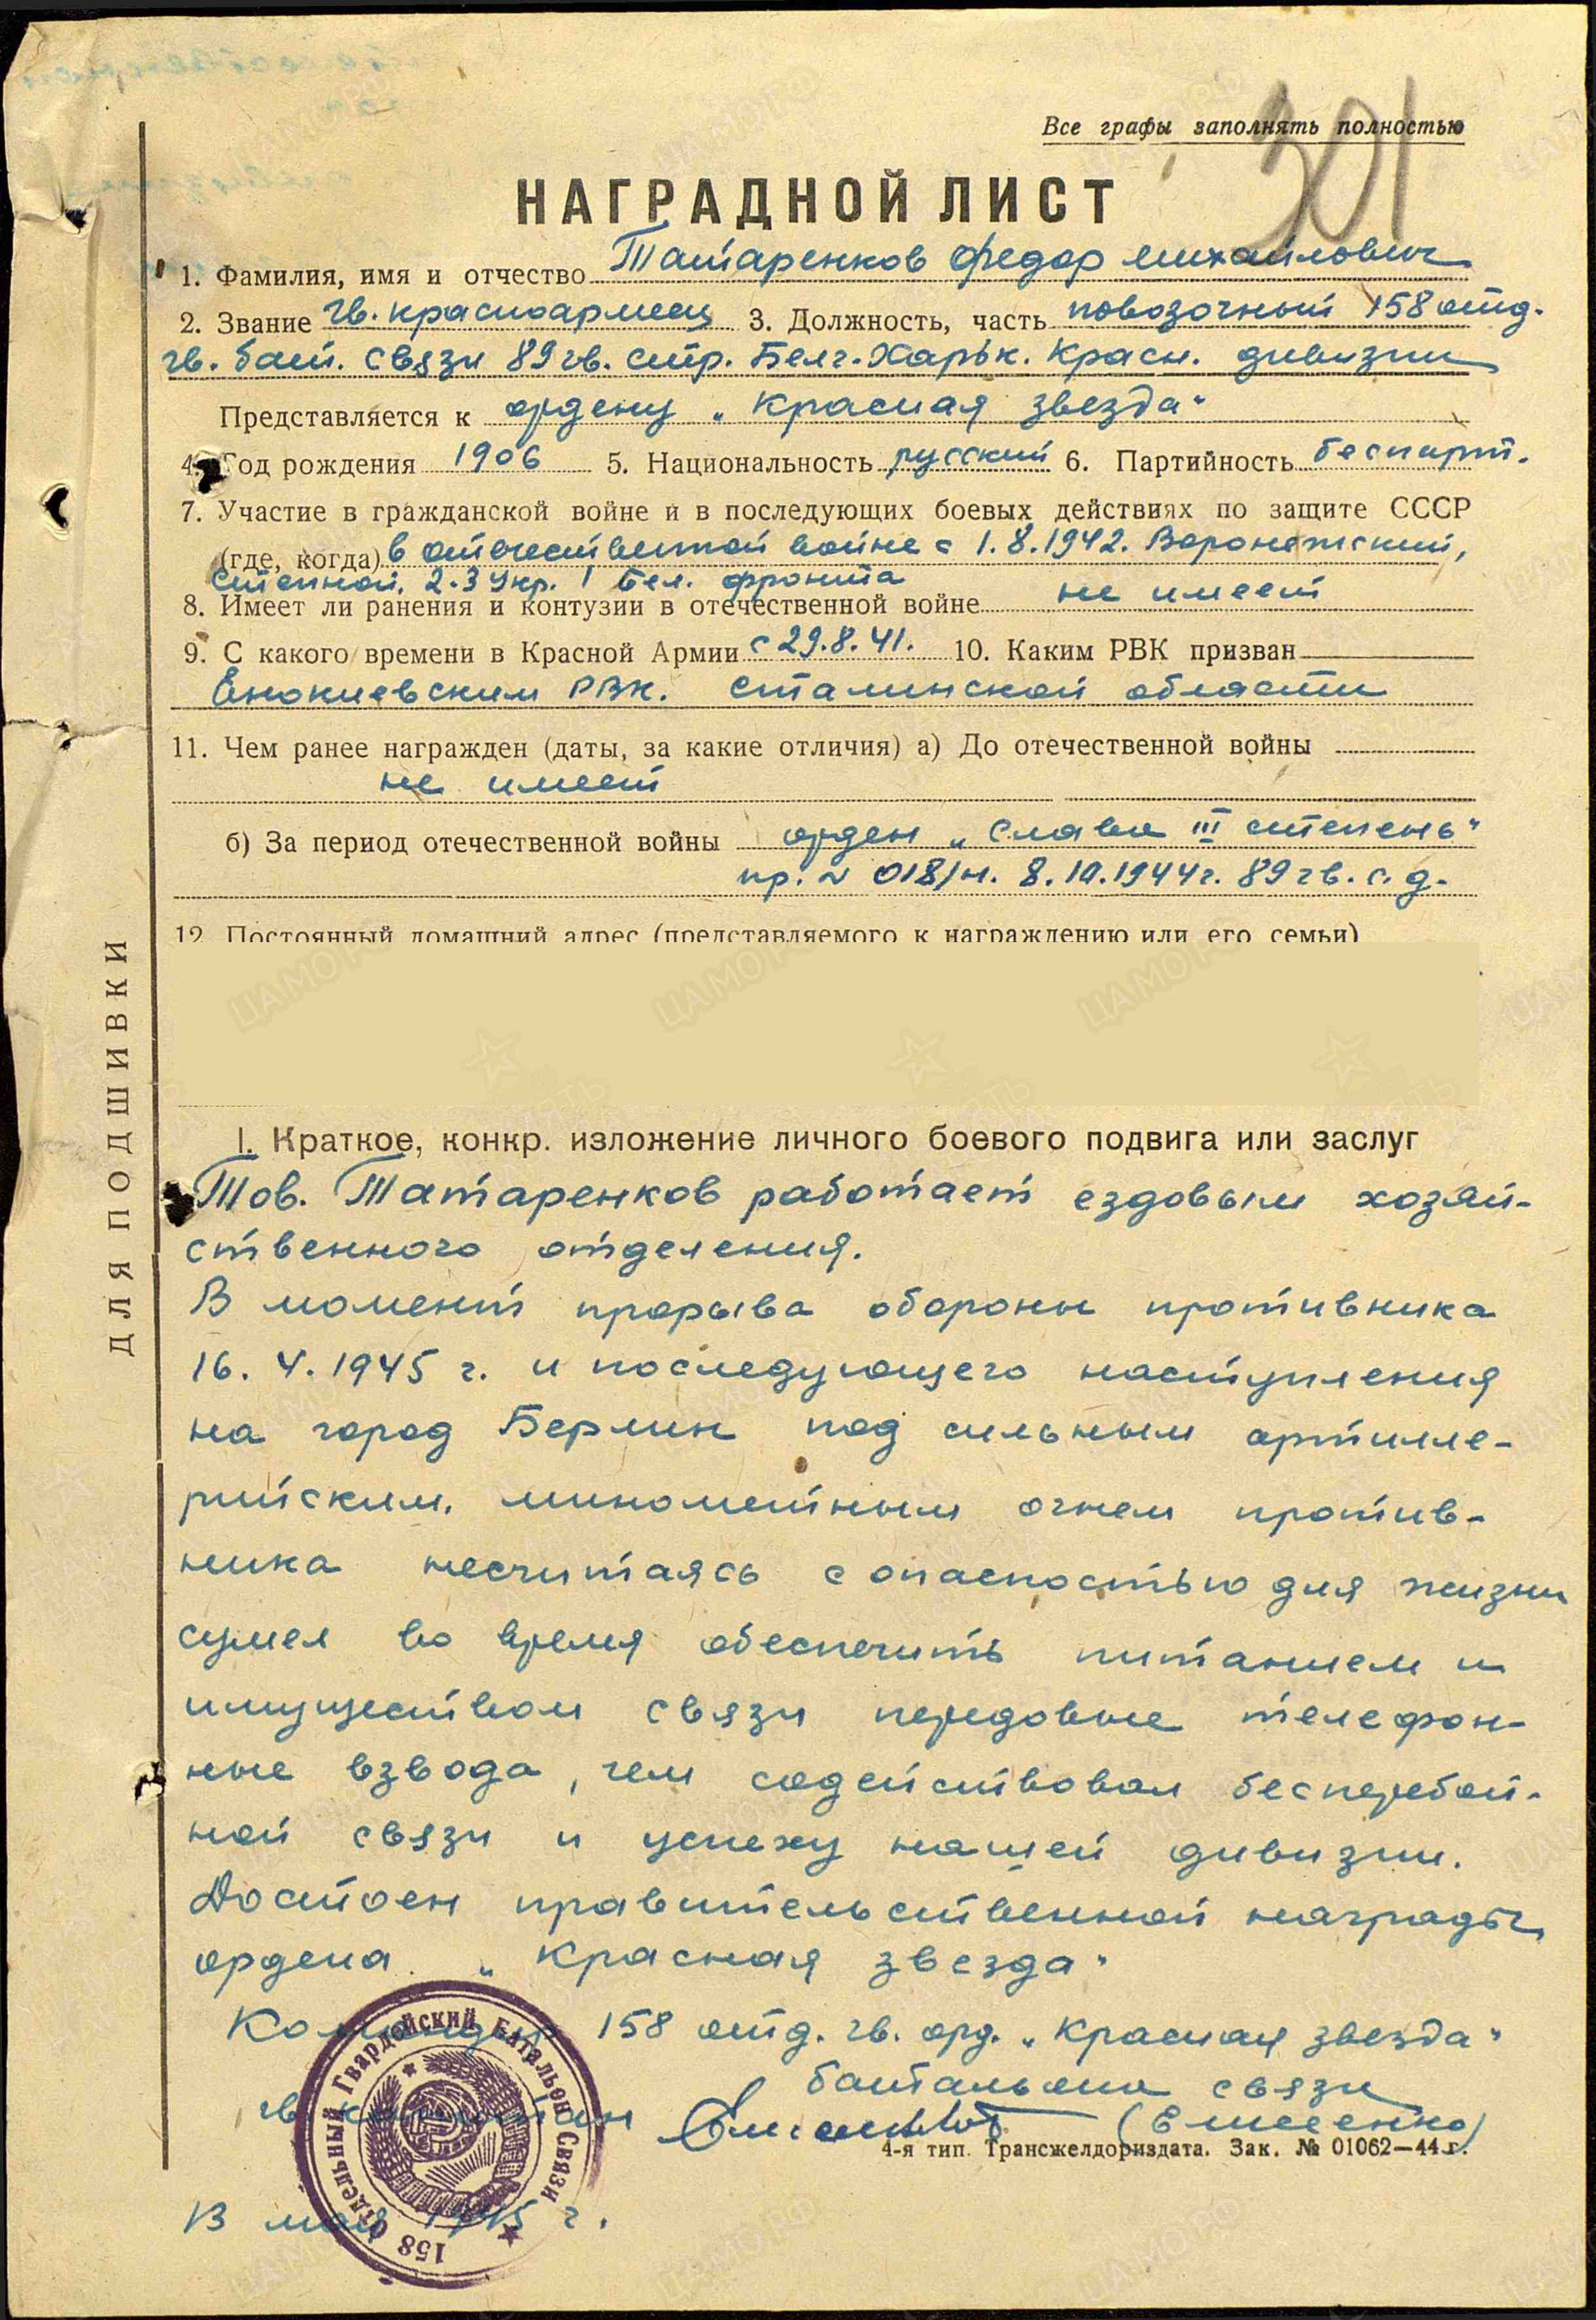 301
Все графы заполнять полностью
НАГРАДНОЙ ЛИСТ
1. Фамилия, имя и отчество Татаренков Федор Михайлович
2. Звание гв. красноармеец 3. Должность, часть повозочный 158 отд.
гв. бат. связи 89 гв. стр. Белг.-Харьк. Красн. дивизии
Представляется к ордену „Красная звезда"
4. Год рождения 1906 5. Национальность русский 6. Партийность беспарт.
7. Участие в гражданской войне и в последующих боевых действиях по защите СССР
(где, когда) в отечественной войне с 1.8.1942. Воронежский,
Степной, 2-3 Укр. 1 Бел. фронта
8. Имеет ли ранения и контузии в отечественной войне не имеет
9. С какого времени в Красной Армии с 29.8.41. 10. Каким РВК призван
Енокиевским РВК. Сталинской области
11. Чем ранее награжден (даты, за какие отличия) а) До отечественной войны
не имеет
б) За период отечественной войны орден „Славы III степень"
пр. № 018/н. 8.10.1944г. 89 гв. с. д.
12. Постоянный домашний адрес (представляемого к награждению или его семьи)
ДЛЯ ПОДШИВКИ
I. Краткое, конкр. изложение личного боевого подвига или заслуг
Тов. Татаренков работает ездовым хозяй-
ственного отделения.
В момент прорыва обороны противника
16. 4. 1945 г. и последующего наступления
на город Берлин под сильным артилле-
рийским, минометным огнем против-
ника несчитаясь с опасностью для жизни
сумел во время обеспечить питанием и
имуществом связи передовые телефон-
ные взвода, чем содействовал бесперебой-
ной связи и успеху нашей дивизии.
Достоен правительственной награды
ордена „Красная звезда"
Командир 158 отд. гв. орд. „Красная звезда"
батальона связи
гв капитан (Елисеенко)
4-я тип. Трансжелдориздата. Зак. № 01062—44 г.
13 мая 1945 г.
158 Отдельный Гвардейский Батальон Связи